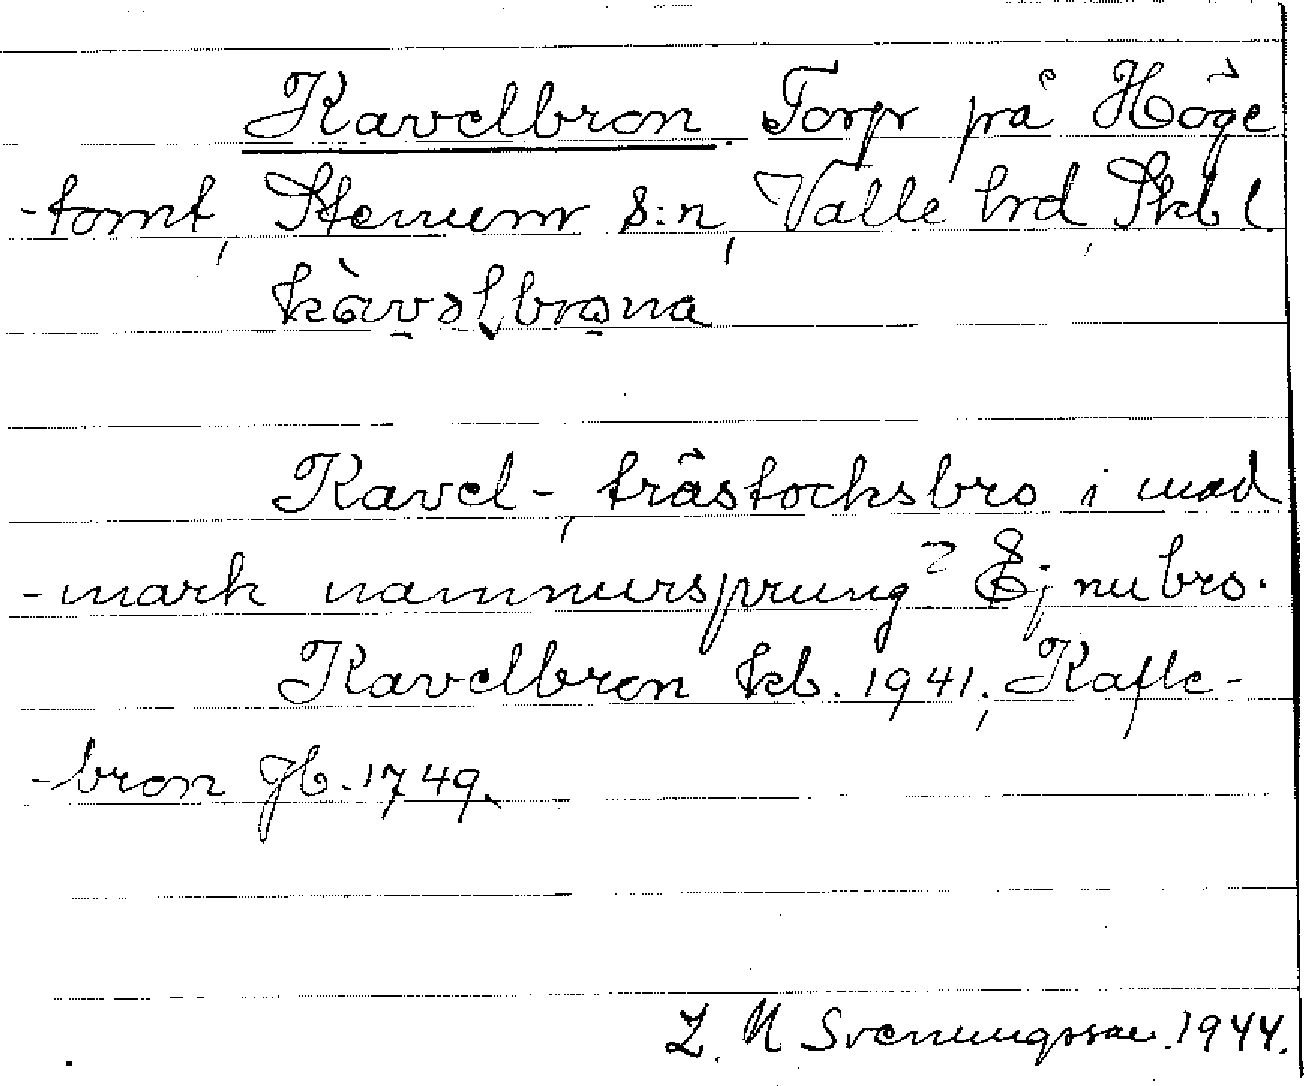 Kavelbron Torp på Höge
-tomt, Stenum s:n, Valle hrd, Skb l
kàvəlbrona
Kavel-, trästocksbro i mad
-mark namnursprung? Ej nu bro.
Kavelbron kb. 1941; Kafle-
-bron jb. 1749.
L. N Svenungsson. 1944.